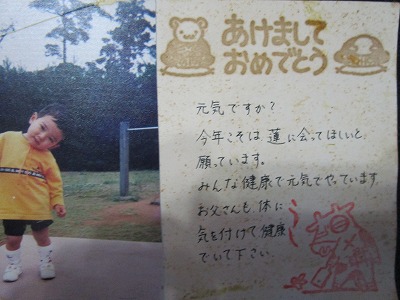 あけまして
おめでとう
元気ですか?
今年こそは 蓮に会ってほしいと
願っています。
みんな健康で元気でやっています
お父さんも 体に
気を付けて健康
でいて下さい。